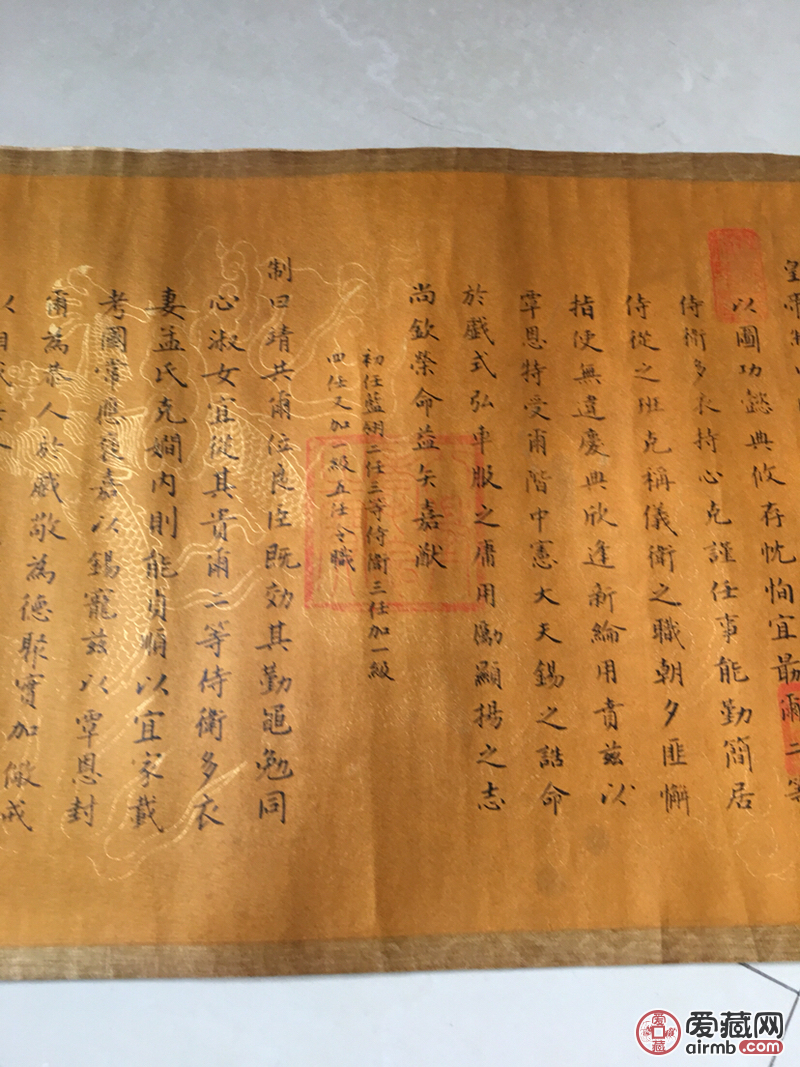 皇帝制曰
宜勗爾二等
以圖功懿典攸存忱恂
侍衛多衣持心克謹任事能勤簡居
侍從之班克稱儀衛之職朝夕匪懈
指使無違慶典欣逢新綸用賁兹以
覃恩特受爾階中憲大夫錫之誥命
於戲式弘車服之庸用勵顯揚之志
尚欽榮命益矢嘉猷
初任藍翎二任三等侍衛三任加一級
四任又加一級五任今職
制曰靖共爾位良臣既効其勤黽勉同
心淑女宜從其貴爾二等侍衛多衣
妻孟氏克嫺内則能貞順以宜家載
考國常應褒嘉以錫寵兹以覃恩封
爾為恭人於戲敬為德聚實加儆戒
以相成
爱藏网
airmb.com
藏